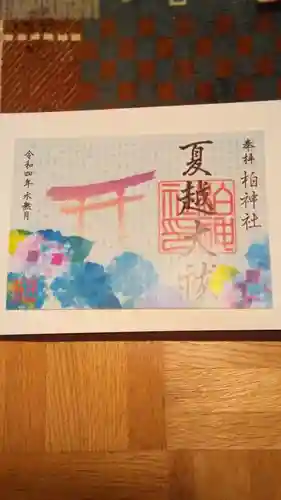 奉拝 柏神社
夏越大祓
令和四年 水無月